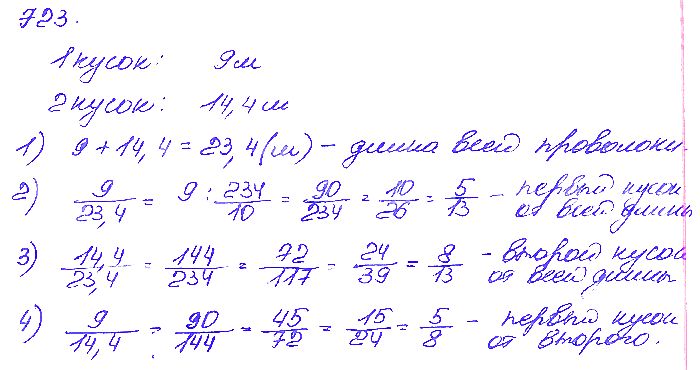 723.
1 кусок: 9 м
2 кусок: 14,4 м
1) 9 + 14,4 = 23,4 (м) – длина всей проволоки.
2) 9/23,4 = 9 : 234/10 = 90/234 = 10/26 = 5/13 – первый кусок от всей длины
3) 14,4/23,4 = 144/234 = 72/117 = 24/39 = 8/13 – второй кусок от всей длины
4) 9/14,4 = 90/144 = 45/72 = 15/24 = 5/8 – первый кусок от второго.